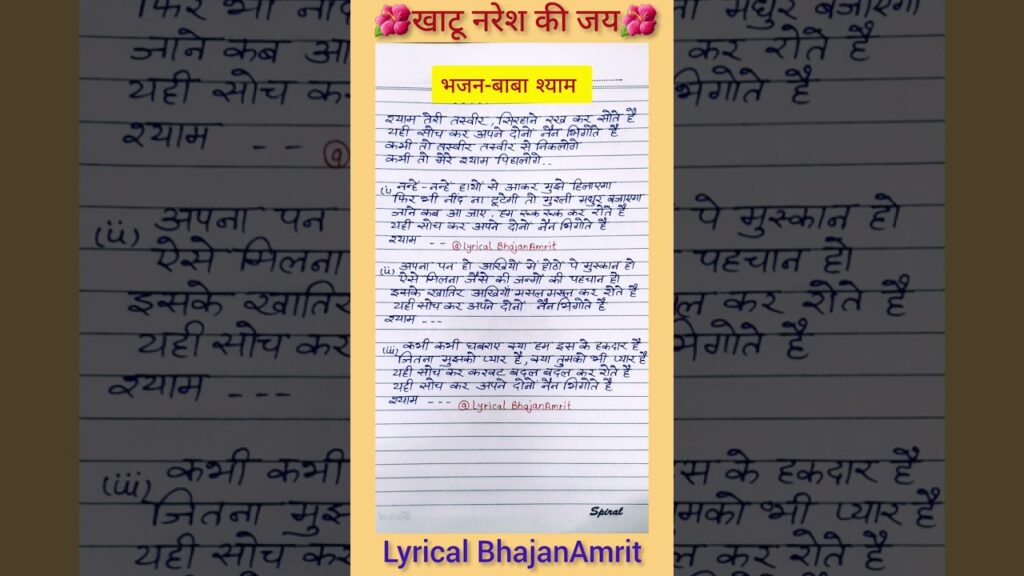 🌺खाटू नरेश की जय🌺
भजन-बाबा श्याम
श्याम तेरी तस्वीर, सिरहाने रख कर सोते है
यही सोच कर अपने दोनो नैन भिगोते है
कभी तो तस्वीर तस्वीर से निकलोगे
कभी तो मेरे श्याम पिघलोगे..
(i) नन्हें-नन्हें हाथो से आकर मुझे हिलाएगा
फिर भी नींद ना टूटेगी तो मुरली मधुर बजाएगा
जाने कब आ जाए, हम रूक रूक कर रोते है
यही सोच कर अपने दोनो नैन भिगोते है
श्याम --
@Lyrical BhajanAmrit
(ii) अपना पन हो अखियो मे होठो पे मुस्कान हो
ऐसे मिलना जैसे की जन्मो की पहचान हो
इसके खातिर अखियाँ मसल मसल कर रोते है
यही सोच कर अपने दोनो नैन भिगोते है
श्याम ---
(iii) कभी कभी घबराए क्या हम इस के हकदार है
जितना मुझको प्यार है, क्या तुमको भी प्यार है
यही सोच कर करवट बदल बदल कर रोते है
यही सोच कर अपने दोनो नैन भिगोते है
श्याम ---
@Lyrical BhajanAmrit
Spiral
Lyrical BhajanAmrit